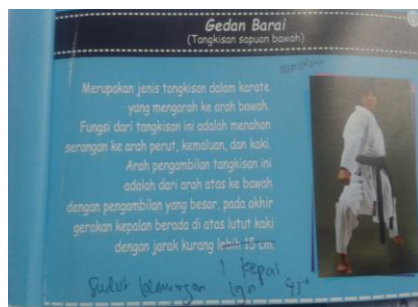 Gedan Barai
(Tangkisan sapuan bawah)
Merupakan jenis tangkisan dalam karate
yang mengarah ke arah bawah.
Fungsi dari tangkisan ini adalah menahan
serangan ke arah perut, kemaluan, dan kaki.
Arah pengambilan tangkisan ini
adalah dari arah atas ke bawah
dengan pengambilan yang besar, pada akhir
gerakan kepalan berada di atas lutut kaki
dengan jarak kurang lebih 15 cm.
1 kepal
Sudut kemiringan